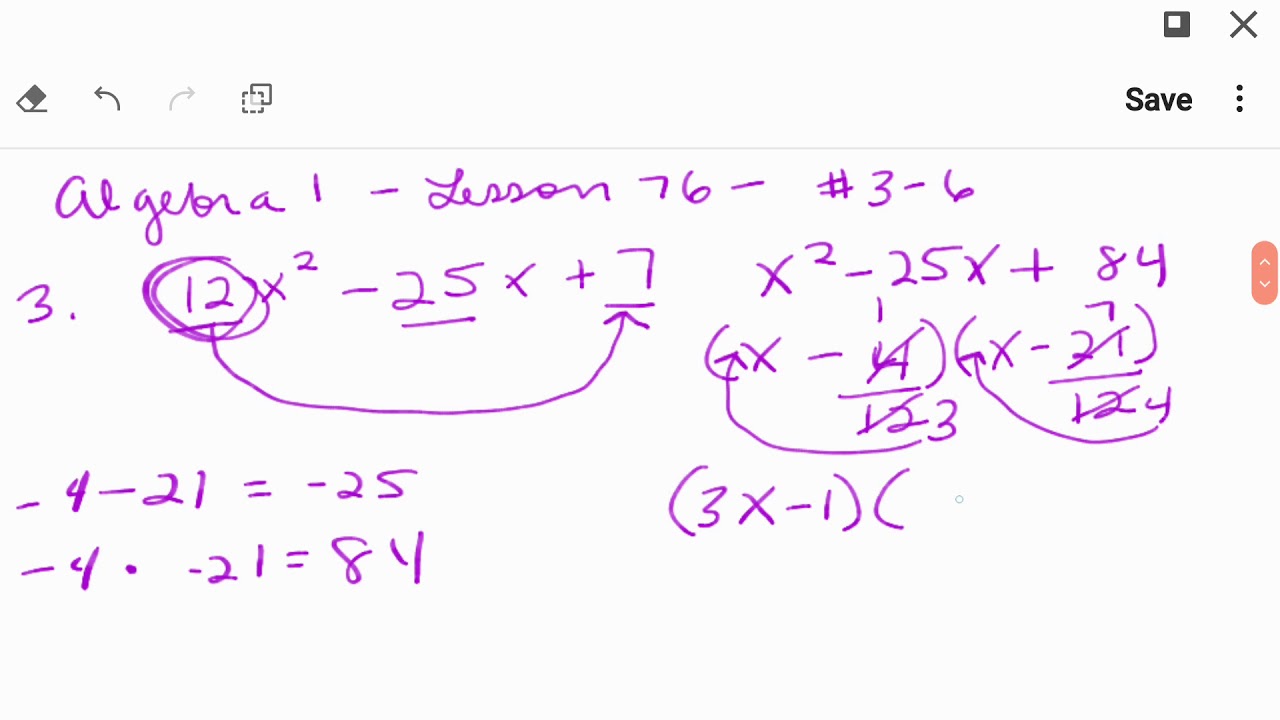 Save
Algebra 1 - Lesson 76 - #3-6
3. 12x² - 25x + 7
x² - 25x + 84
(x - 4/12)(x - 21/12)
1 3 7 4
-4 - 21 = -25
-4 · -21 = 84
(3x - 1)(